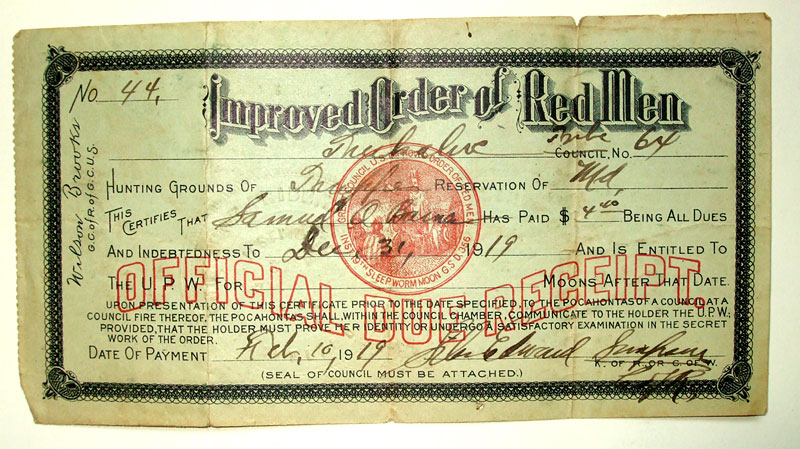 No 44.
Improved Order of Red Men
Tribe 64
COUNCIL, NO.
HUNTING GROUNDS OF RESERVATION OF Md.
THIS CERTIFIES THAT Samuel O. HAS PAID $ 4.40 BEING ALL DUES
AND INDEBTEDNESS TO Dec 31, 1919 AND IS ENTITLED TO
THE U.P.W. FOR MOONS AFTER THAT DATE.
OFFICIAL DUE RECEIPT.
UPON PRESENTATION OF THIS CERTIFICATE PRIOR TO THE DATE SPECIFIED, TO THE POCAHONTAS OF A COUNCIL AT A
COUNCIL FIRE THEREOF, THE POCAHONTAS SHALL, WITHIN THE COUNCIL CHAMBER, COMMUNICATE TO THE HOLDER THE U.P.W.;
PROVIDED, THAT THE HOLDER MUST PROVE HER IDENTITY OR UNDERGO A SATISFACTORY EXAMINATION IN THE SECRET
WORK OF THE ORDER.
DATE OF PAYMENT Feb, 10, 1919 Edward
K. OF R. OR C. OF W.
(SEAL OF COUNCIL MUST BE ATTACHED.)
Wilson Brooks
G.C. of R. of G.C.U.S.
GREAT COUNCIL U.S. IMPROVED ORDER OF RED MEN
INST. 15TH SLEEP WORM MOON G.S.D. 356